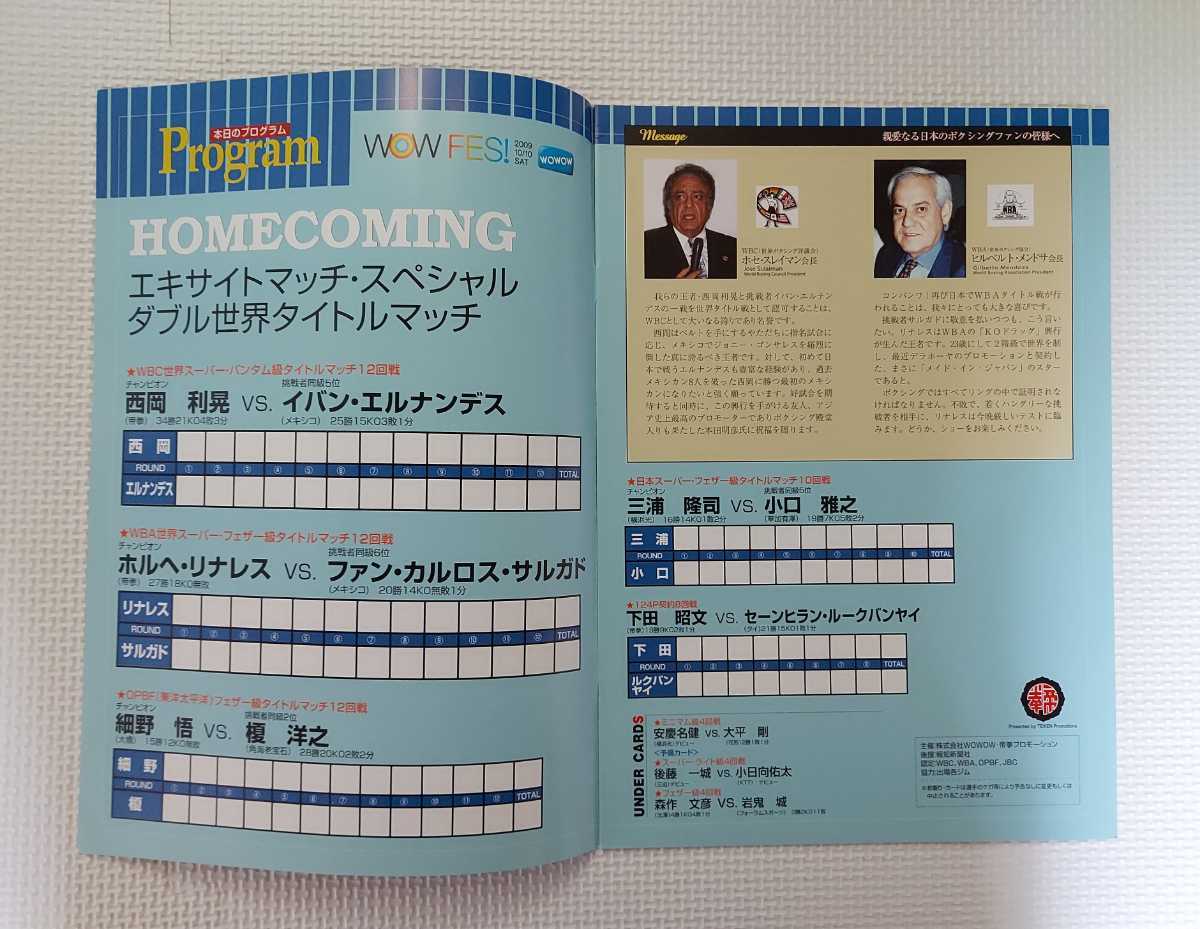 本日のプログラム
Program
WOW FES!
2009
10/10
SAT
WOWOW
HOMECOMING
エキサイトマッチ・スペシャル
ダブル世界タイトルマッチ
★WBC世界スーパー・バンタム級タイトルマッチ12回戦
チャンピオン 挑戦者同級5位
西岡 利晃 VS. イバン・エルナンデス
(帝拳) 34勝21KO4敗3分 (メキシコ) 25勝15KO3敗1分
西岡
ROUND ① ② ③ ④ ⑤ ⑥ ⑦ ⑧ ⑨ ⑩ ⑪ ⑫ TOTAL
エルナンデス
★WBA世界スーパー・フェザー級タイトルマッチ12回戦
チャンピオン 挑戦者同級6位
ホルヘ・リナレス VS. ファン・カルロス・サルガド
(帝拳) 27勝18KO無敗 (メキシコ) 20勝14KO無敗1分
リナレス
ROUND ① ② ③ ④ ⑤ ⑥ ⑦ ⑧ ⑨ ⑩ ⑪ ⑫ TOTAL
サルガド
★OPBF(東洋太平洋)フェザー級タイトルマッチ12回戦
チャンピオン 挑戦者同級2位
細野 悟 VS. 榎 洋之
(大橋) 15勝12KO無敗 (角海老宝石) 28勝20KO2敗2分
細野
ROUND ① ② ③ ④ ⑤ ⑥ ⑦ ⑧ ⑨ ⑩ ⑪ ⑫ TOTAL
榎
Message 親愛なる日本のボクシングファンの皆様へ
WBC(世界ボクシング評議会)
ホセ・スレイマン会長
Jose Sulaiman
World Boxing Council President
WBA
WBA(世界ボクシング協会)
ヒルベルト・メンドサ会長
Gilberto Mendoza
World Boxing Association President
我らの王者・西岡利晃と挑戦者イバン・エルナン
デスの一戦を世界タイトル戦として認可することは、
WBCとして大いなる誇りであり名誉です。
西岡はベルトを手にするやただちに指名試合に
応じ、メキシコでジョニー・ゴンサレスを痛烈に
倒した真に誇るべき王者です。対して、初めて日
本で戦うエルナンデスも豊富な経験があり、過去
メキシカン8人を破った西岡に勝つ最初のメキシ
カンになりたいと強く願っています。好試合を期
待すると同時に、この興行を手がける友人、アジ
ア史上最高のプロモーターでありボクシング殿堂
入りも果たした本田明彦氏に祝福を贈ります。
コンバンワ！再び日本でWBAタイトル戦が行
われることは、我々にとっても大きな喜びです。
挑戦者サルガドに敬意を払いつつも、こう言い
たい。リナレスはWBAの「KOドラッグ」興行
が生んだ王者です。23歳にして2階級で世界を制
し、最近デラホーヤのプロモーションと契約し
た、まさに「メイド・イン・ジャパン」のスター
であると。
ボクシングではすべてリングの中で証明されな
ければなりません。不敗で、若くハングリーな挑
戦者を相手に、リナレスは今晩厳しいテストに臨
みます。どうか、ショーをお楽しみください。
★日本スーパー・フェザー級タイトルマッチ10回戦
チャンピオン 挑戦者同級5位
三浦 隆司 VS. 小口 雅之
(横浜光) 16勝14KO1敗2分 (草加有澤) 19勝7KO5敗2分
三浦
ROUND ① ② ③ ④ ⑤ ⑥ ⑦ ⑧ ⑨ ⑩ TOTAL
小口
★124P契約8回戦
下田 昭文 VS. セーンヒラン・ルークバンヤイ
(タイ)21勝15KO1敗1分
下田
ROUND ① ② ③ ④ ⑤ ⑥ ⑦ ⑧ TOTAL
ルクバン
ヤイ
UNDER CARDS
★ミニマム級4回戦
安慶名健 VS. 大平 剛
<予備カード>
★スーパー・ライト級4回戦
後藤 一城 VS. 小日向佑太
★フェザー級4回戦
森作 文彦 VS. 岩鬼 城
帝拳
Presented by TEIKEN Promotions
主催:株式会社WOWOW・帝拳プロモーション
後援:報知新聞社
認定:WBC、WBA、OPBF、JBC
協力:出場各ジム
※前座り・カードは選手のケガ等により予告なしに変更もしくは
中止されることがあります。